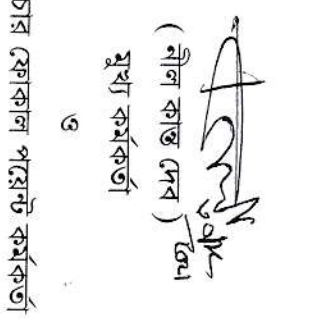 ( নীল কান্ত দেব )
মুখ্য কর্মকর্তা
ও
চার ফোকাল পয়েন্ট কর্মকর্তা